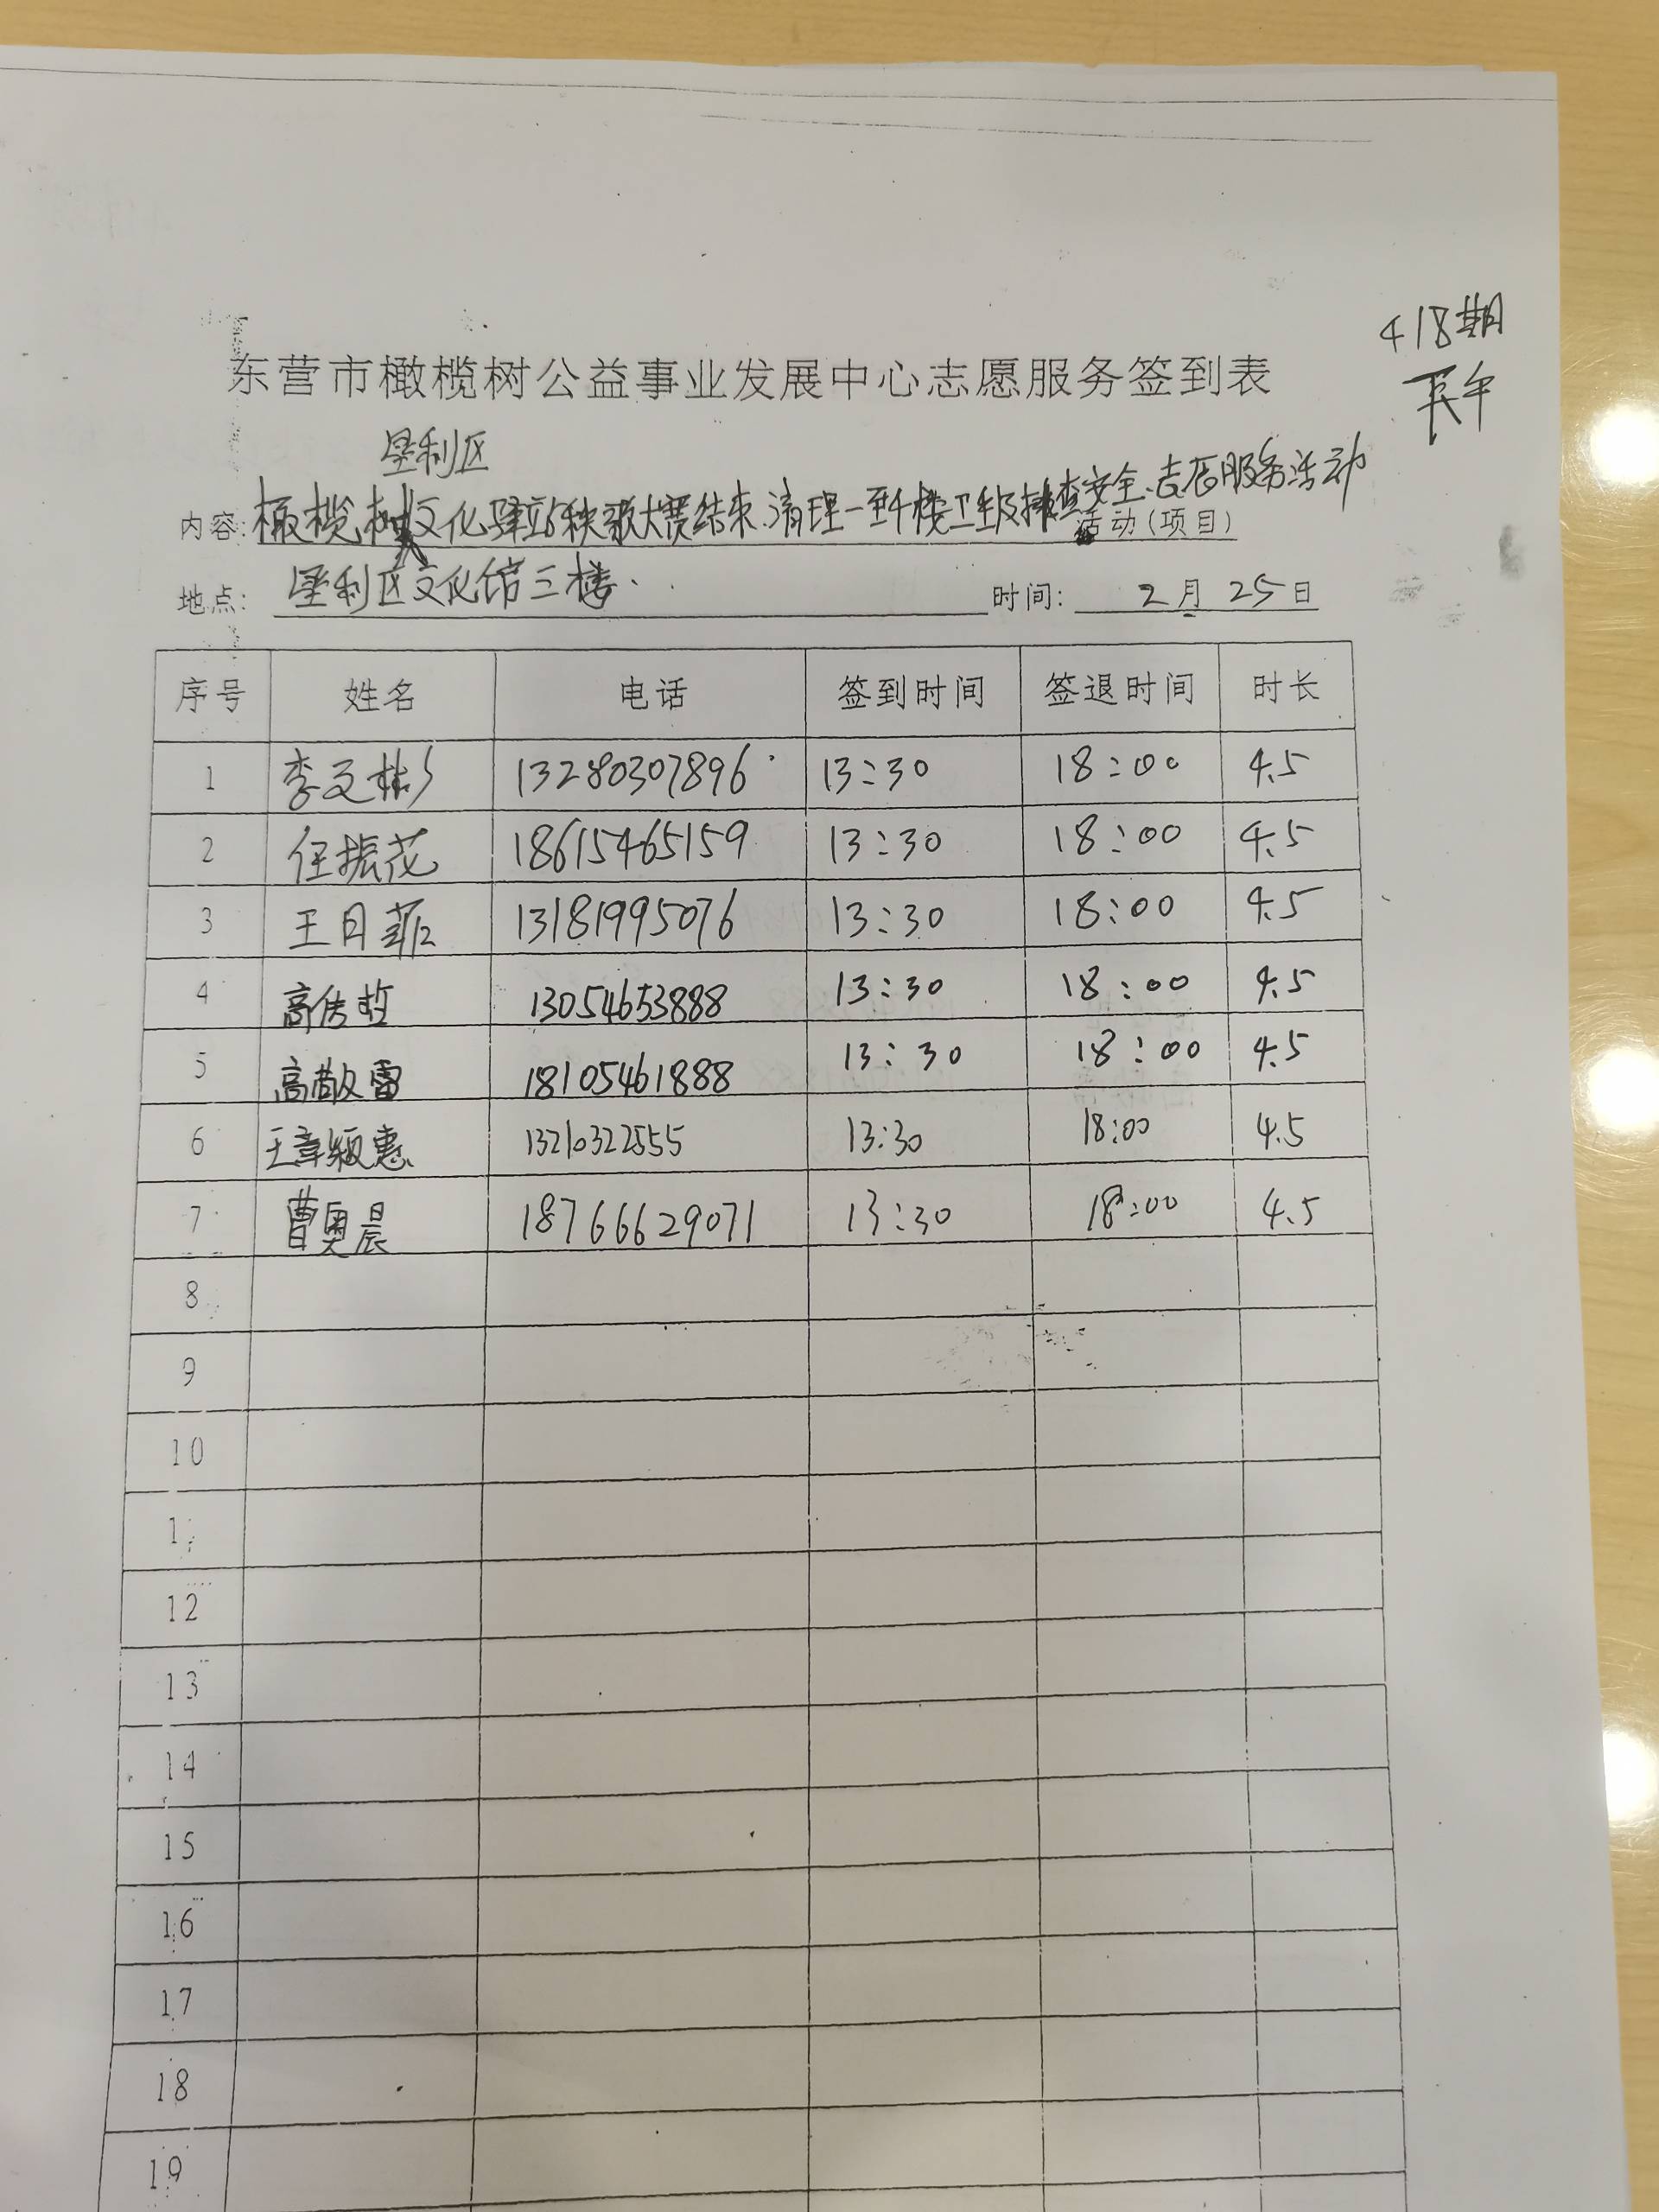 418期
下午
东营市橄榄树公益事业发展中心志愿服务签到表
垦利区
内容: 橄榄树文化驿站秧歌大赛结束、清理一至4楼卫生及排查安全、志愿服务活动
活动(项目)
地点: 垦利区文化馆三楼. 时间: 2月25日
序号 姓名 电话 签到时间 签退时间 时长
1 李文彬 13280307896 13:30 18:00 4.5
2 任振花 18615465159 13:30 18:00 4.5
3 王日菲 13181995076 13:30 18:00 4.5
4 高传哲 13054653888 13:30 18:00 4.5
5 高敬雷 18105461888 13:30 18:00 4.5
6 王章颖惠 13210322555 13:30 18:00 4.5
7 曹奥晨 18766629071 13:30 18:00 4.5
8
9
10
12
13
14
15
16
17
18
19